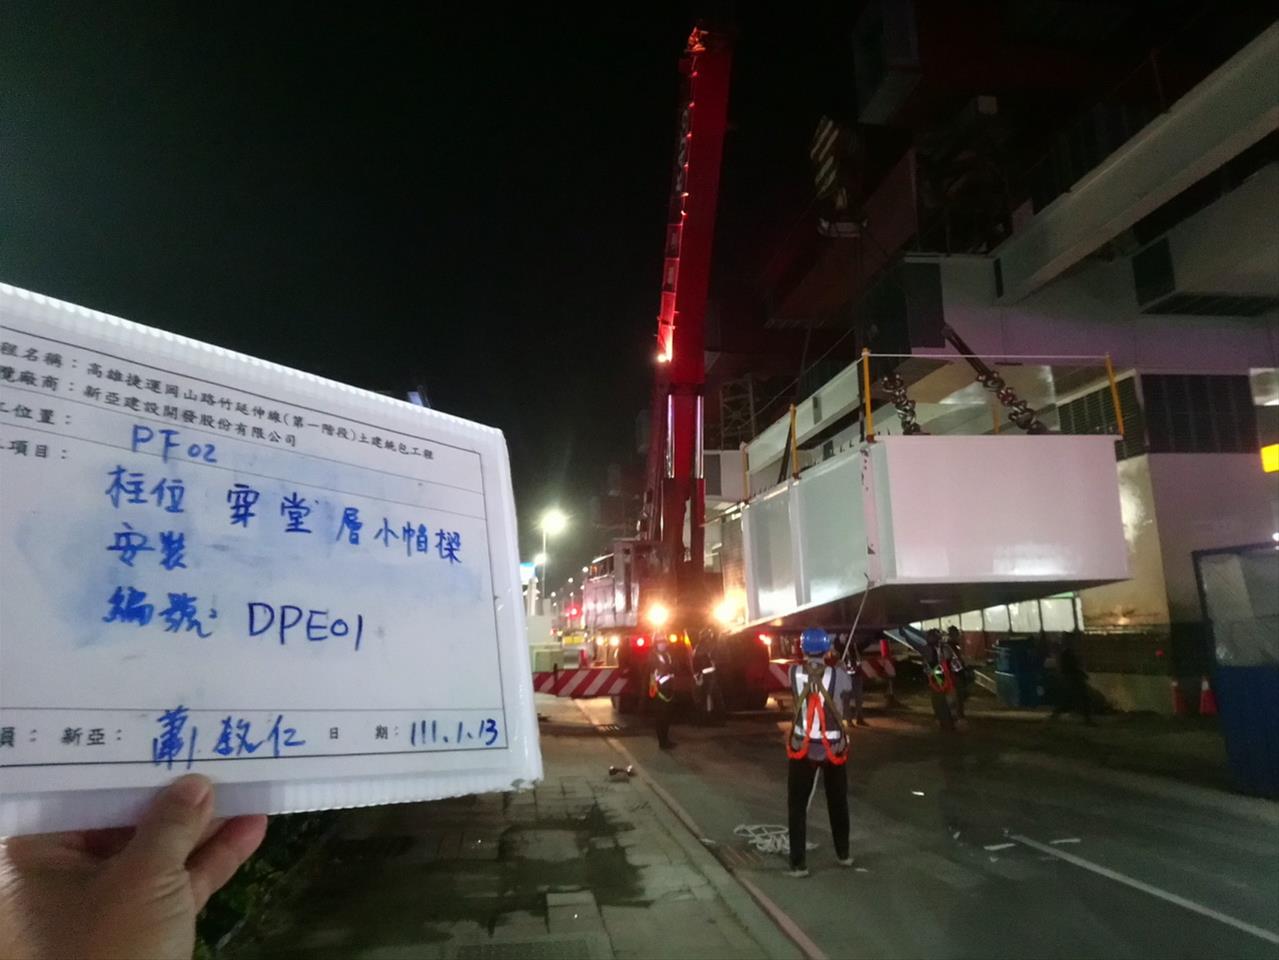 程名稱：高雄捷運岡山路竹延伸線(第一階段)土建統包工程
攬廠商：新亞建設開發股份有限公司
工位置： PF02
項目： 柱位 穿堂層小帽樑
安裝
編號： DPE01
員： 新亞： 蕭敎仁 日 期： 111.1.13